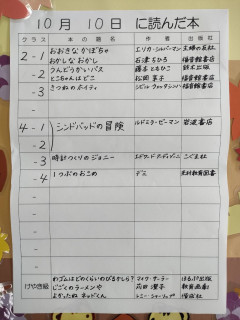 10月10日に読んだ本
クラス 本の題名 作者 出版社
2-1 おおきなかぼちゃ エリカ・シルバーマン 主婦の友社
おかしなおかし 石津ちひろ 福音館書店
-2 うんどうかいバス 藤本ともひこ 鈴木出版
とちゃんはどこ 松岡享子 福音館書店
-3 きつねのホイティ シビル・ウェッタシンハ 福音館書店
4-1 シンドバッドの冒険 ルドミラ・ゼーマン 岩波書店
-2
-3 時計つくりのジョニー エドワード・アーディゾーニ こぐま社
-4 1つぶのおこめ デミ 光村教育図書
けやき級 わゴムはどのくらいのびるかしら? マイク・サーラー ほるぷ出版
じごくのラーメンや 苅田澄子 教育画劇
よかったねネッドくん レミー・シャーリップ 偕成社